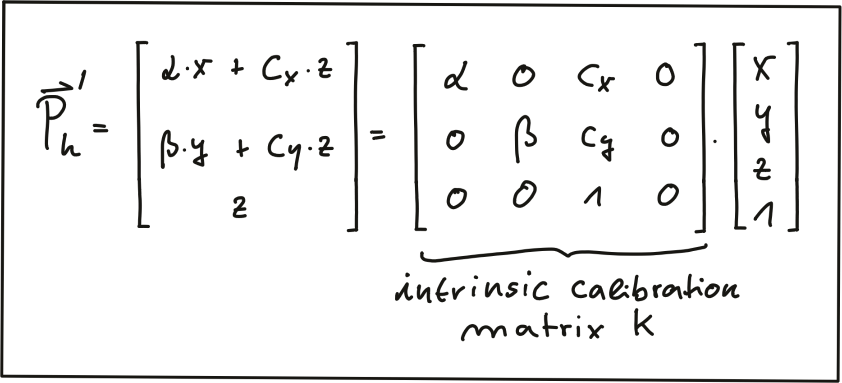 P⃗ₕ' = [ α·x + Cx·z ; β·y + Cy·z ; z ] = [ α 0 Cx 0 ; 0 β Cy 0 ; 0 0 1 0 ] · [ x ; y ; z ; 1 ]
intrinsic calibration
matrix K